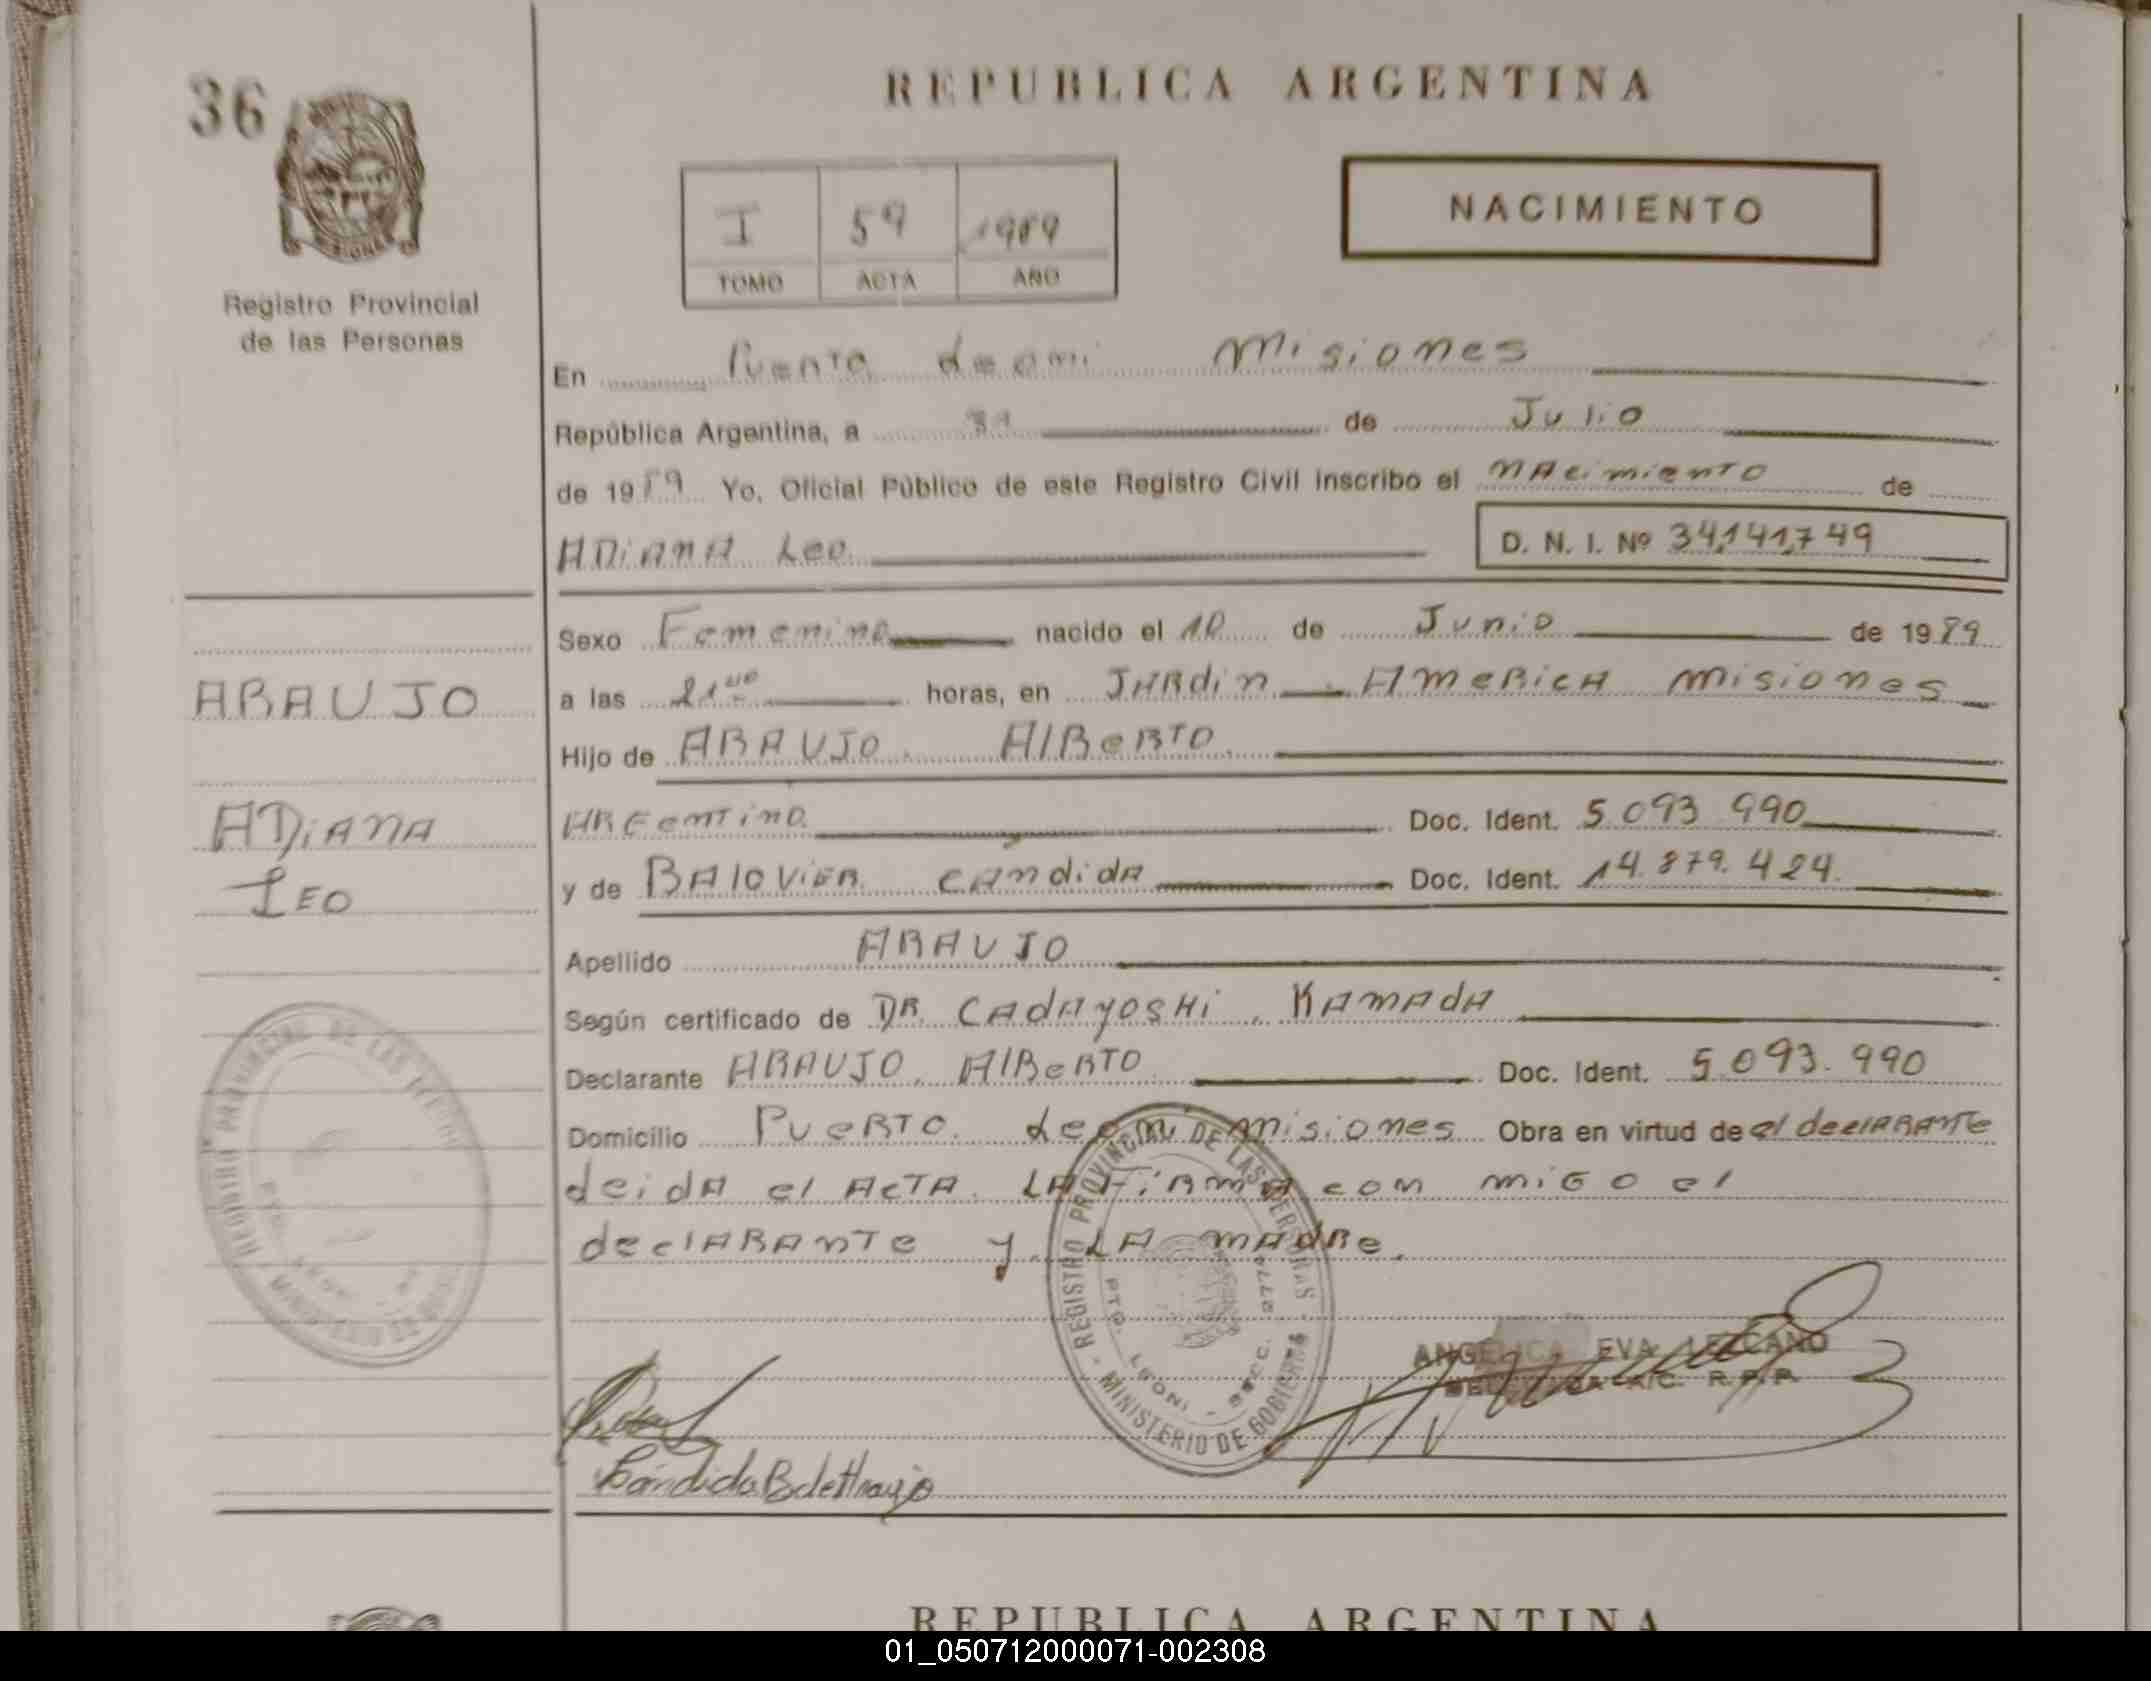 36
REPUBLICA ARGENTINA
NACIMIENTO
I 59 1989
TOMO ACTA AÑO
Registro Provincial
de las Personas
En Puerto Leoni Misiones
República Argentina, a 31 de Julio
de 1989 Yo, Oficial Público de este Registro Civil inscribo el nacimiento de
ADiANA Leo
D. N. I. Nº 34,141,749
Sexo Femenino nacido el 10 de Junio de 1989
a las 21 horas, en JARdin AmeRicA misiones
Hijo de ARAUJO AlBeRTO
ARGenTino Doc. Ident. 5.093.990
y de BAlOViER CAndidA Doc. Ident. 14.879.424
Apellido ARAUJO
Según certificado de DR. CAdAyOSHi KAmAdA
Declarante ARAUJO, AlBeRTO Doc. Ident. 5.093.990
Domicilio PUeRTO Leoni misiones Obra en virtud de el declARAnTe
LeidA el ActA LA FiRmA con miGo el
declARAnTe y LA mAdRe.
ARAUJO
ADiANA
LEO
REGISTRO PROVINCIAL DE LAS PERSONAS - MINISTERIO DE GOBIERNO
PTO. LEONI - SECC.
ANGELICA EVA LEZCANO
A/C. R.P.P.
Cándida B de Araujo
REPUBLICA ARGENTINA
01_050712000071-002308